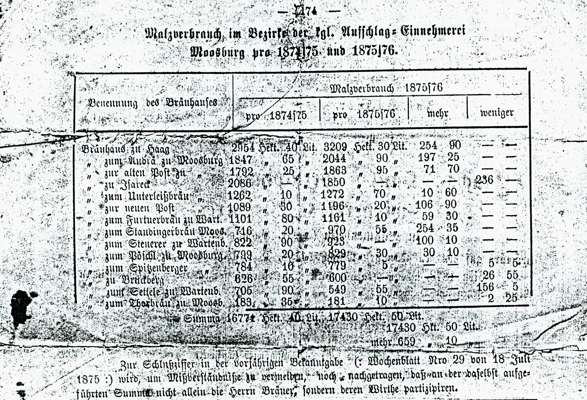 — 1274 —
Malzverbrauch im Bezirke der kgl. Aufschlag-Einnehmerei
Moosburg pro 1874/75 und 1875/76.
Benennung des Bräuhauses
Malzverbrauch 1875/76
pro 1874/75 pro 1875/76 mehr weniger
Bräuhaus zu Haag 2954 Hekt. 40 Lit. 3209 Hekt. 30 Lit. 254 90 — —
„ zum Aubrä zu Moosburg 1847 „ 65 „ 2044 „ 90 „ 197 25 — —
„ zur alten Post zu „ 1792 „ 25 „ 1863 „ 95 „ 71 70 — —
„ zu Isareck 2086 „ — „ 1850 „ — „ — — 236 —
„ zum Unterleißbräu 1262 „ 10 „ 1272 „ 70 „ 10 60 — —
„ zur neuen Post 1089 „ 30 „ 1196 „ 20 „ 106 90 — —
„ zum Furtnerbräu zu Wart. 1101 „ 80 „ 1161 „ 10 „ 59 30 — —
„ zum Staudingerbräu Moos. 716 „ 20 „ 970 „ 55 „ 254 35 — —
„ zum Steuerer zu Wartenb. 822 „ 90 „ 923 „ — „ 100 10 — —
„ zum Pöschl zu Moosburg 799 „ 20 „ 829 „ 30 „ 30 10 — —
„ zum Spitzenberger „ 784 „ 10 „ 779 „ 5 „ — — 5 5
„ zu Bruckberg 626 „ 55 „ 600 „ — „ — — 26 55
„ zum Settele zu Wartenb. 705 „ 90 „ 549 „ 55 „ — — 156 5
„ zum zu Moosb. 183 „ 35 „ 181 „ 10 „ — — 2 25
Summa 16771 Hekt. 40 Lit. 17430 Hekt. 50 Lit.
17430 Hkt. 50 Lit.
mehr 659 „ 10 „
Zur Schlußziffer in der vorjährigen Bekanntgabe (: Wochenblatt Nro 29 von 18 Juli
1875 :) wird, um Mißverständniße zu vermeiden, noch nachgetragen, daß an der daselbst aufge-
führten Summe nicht allein die Herrn Bräuer, sondern deren Wirthe partizipiren.